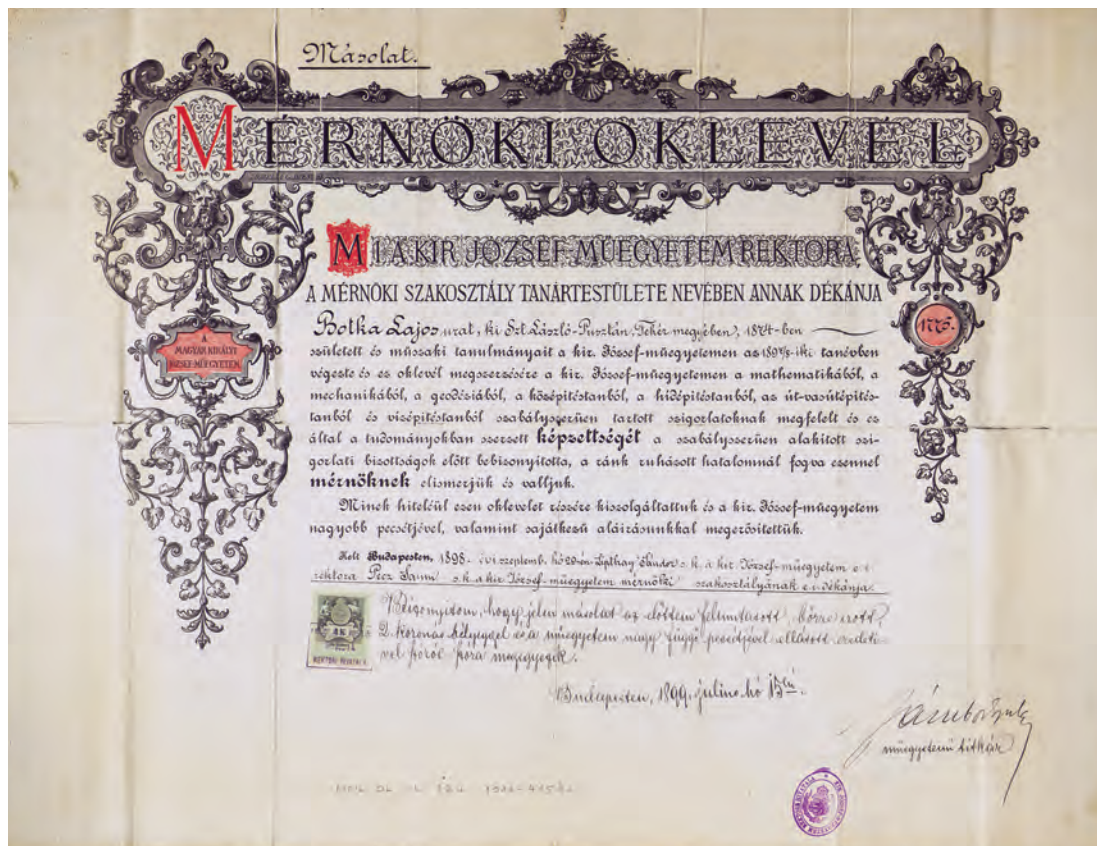 Másolat.
MÉRNÖKI OKLEVÉL
MI A KIR JÓZSEF-MŰEGYETEM REKTORA,
A MÉRNÖKI SZAKOSZTÁLY TANÁRTESTÜLETE NEVÉBEN ANNAK DÉKÁNJA
Botka Lajos urat, ki Szt. László-Pusztán, Fehér megyében, 1874-ben
született és műszaki tanulmányait a kir. József-műegyetemen az 1897/8-iki tanévben
végezte és ez oklevél megszerzésére a kir. József-műegyetemen a mathematikából, a
mechanikából, a geodéziából, a középítéstanból, a hídépítéstanból, az út-vasútépítés-
tanból és vízépítéstanból szabályszerűen tartott szigorlatoknak megfelelt és ez
által a tudományokban szerzett képzettségét a szabályszerűen alakított szi-
gorlati bizottságok előtt bebizonyította, a ránk ruházott hatalomnál fogva ezennel
mérnöknek elismerjük és valljuk.
Minek hiteléül ezen oklevelet részére kiszolgáltattuk és a kir. József-műegyetem
nagyobb pecsétjével, valamint sajátkezű aláírásunkkal megerősítettük.
Kelt Budapesten, 1898. évi szeptemb. hó 29-én Lipthay Sándor s. k. a kir. József-műegyetem e. i.
rektora Pecz Samu s. k. a kir. József-műegyetem mérnöki szakosztályának e. i. dékánja.
A
MAGYAR KIRÁLYI
JÓZSEF-MŰEGYETEM
1775.
Bizonyítom, hogy jelen másolat az előttem felmutatott, bőrre írott,
2 koronás bélyeggel és a műegyetem nagy függő pecsétjével ellátott eredeti-
vel szóról szóra megegyezik.
Budapesten, 1899. június hó 15én.
műegyetemi titkár